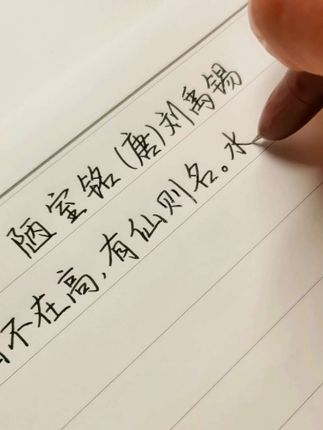 陋室铭(唐)刘禹锡
不在高,有仙则名。水